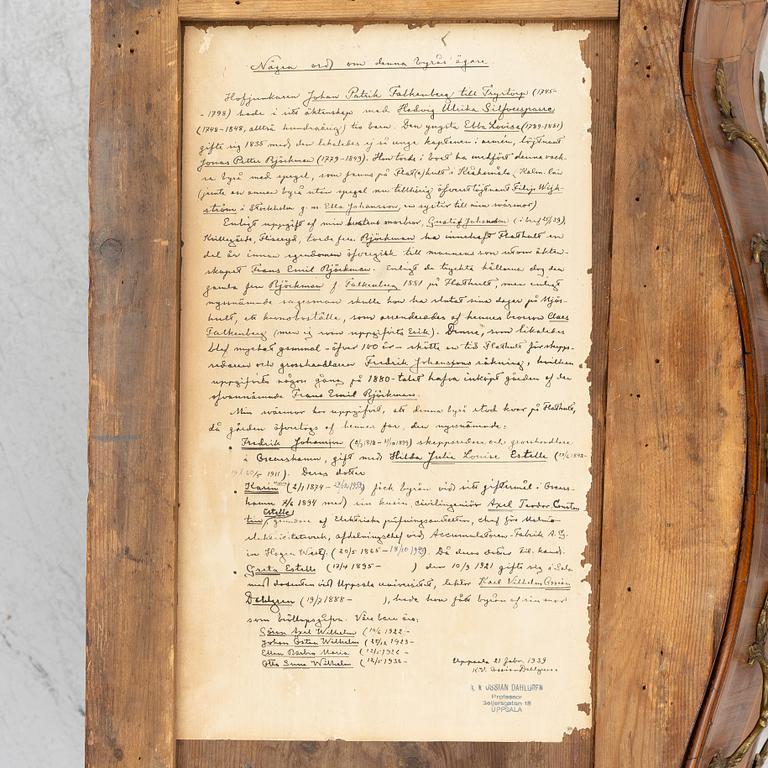 Några ord om denna byrås ägare
Hofjunkaren Johan Patrik Falkenberg till Trystorp (1745-
-1798) hade i sitt äktenskap med Hedvig Ulrika Silfversparre
(1748-1848, alltså hundraårig) tio barn. Den yngsta Ebba Lovisa (1789-1881)
gifte sig 1835 med den likaledes ej så unge kaptenen i armén, löjtnant
Jonas Petter Björkman (1779-1849). Hon torde i boet ha medfört denna vack-
ra byrå med spegel, som fanns på Flat(e)hult i Kalm. län
(jämte en annan byrå utan spegel nu tillhörig öfverstlöjtnant Filip Wijk-
ström i Stockholm g. m. Ella Johansson, en syster till min svärmor)
Enligt uppgift af min morbror, Gustaf Johansson
torde fru Björkman ha innehaft Flathult en
del år innan egendomen öfvergick till mannens son utom äkten-
skapet Frans Emil Björkman. Enligt de tryckta källorna dog den
gamla fru Björkman f. Falkenberg 1881 på Flathult, men enligt
nyssnämnde sagesman skulle hon ha slutat sina dagar på Mjös-
hult, ett kronoboställe, som arrenderades af hennes brorson Claes
Falkenberg (men ej som uppgifvits Erik). Denne, som likaledes
blef mycket gammal - öfver 100 år - skötte en tid Flathult för skepps-
redaren och grosshandlaren Fredrik Johanssons räkning, hvilken
uppgifvits någon gång på 1880-talet hafva inköpt gården af den
ofvannämnde Frans Emil Björkman.
Min svärmor har uppgifvit, att denna byrå stod kvar på Flathult,
då gården öfvertogs af hennes far, den nyssnämnde:
Fredrik Johansson skeppsredare och grosshandlare
i Oscarshamn, gift med Hilda Julia Louise Estelle
1911). Deras dotter
Karin (2/1 1874 - fick byrån vid sitt giftermål i Oscars-
hamn 1894 med sin kusin, civilingeniör Axel Teodor Constan-
tin Estelle, grundare af Elektriska pröfningsanstalten, chef för Malmö
elektricitetsverk, afdelningschef vid Accumulatoren-Fabrik A.G.
in Hagen Westf. (20/5 1865 - 18/10 ). Då deras dotter fil. kand.
Greta Estelle (17/4 1895 - ) den 10/9 1921 gifte sig i
med docenten vid Uppsala universitet, lektor Karl Vilhelm Ossian
Dahlgren (19/2 1888 - ), hade hon fått byrån af sin mor
som bröllopsgåfva. Våra barn äro:
Sören Axel Wilhelm ( 1922 -
Johan Östen Wilhelm ( 1923 -
Ellen Barbro Maria ( 1926 -
Otto Sune Wilhelm ( 1930 -
Uppsala 21 febr. 1939
K. V. Ossian Dahlgren
K. V. OSSIAN DAHLGREN
Professor
Geijersgatan 18
UPPSALA